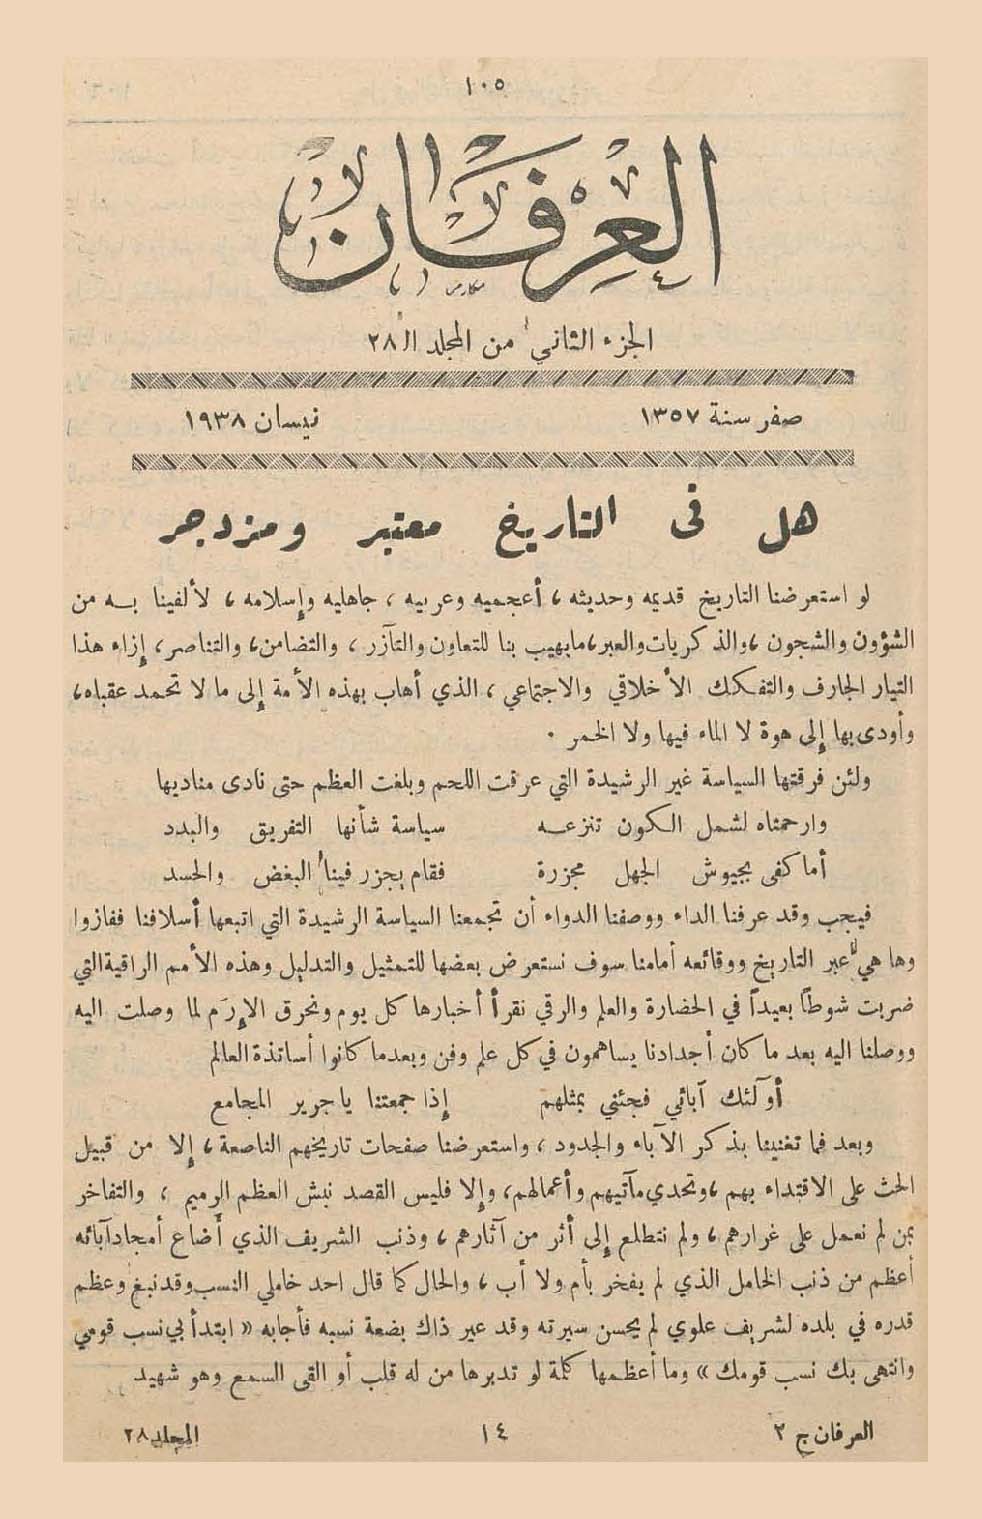 ١٠٥
العرفان
الجزء الثاني من المجلد الـ ٢٨
صفر سنة ١٣٥٧
نيسان ١٩٣٨
هل فى التاريخ معتبر ومزدجر
لو استعرضنا التاريخ قديمه وحديثه ، أعجميه وعربيه ، جاهليه وإسلامه ، لألفينا به من
الشؤون والشجون ، والذكريات والعبر ، مايهيب بنا للتعاون والتآزر ، والتضامن ، والتناصر ، إزاء هذا
التيار الجارف والتفكك الأخلاقي والاجتماعي ، الذي أهاب بهذه الأمة إلى ما لا تحمد عقباه ،
وأودى بها إلى هوة لا الماء فيها ولا الخمر .
ولئن فرقتها السياسة غير الرشيدة التي عرقت اللحم وبلغت العظم حتى نادى مناديها
وارحمتاه لشمل الكون تنزعه سياسة شأنها التفريق والبدد
أما كفى بجيوش الجهل مجزرة فقام يجزر فينا البغض والحسد
فيجب وقد عرفنا الداء ووصفنا الدواء أن تجمعنا السياسة الرشيدة التي اتبعها أسلافنا ففازوا
وها هي عبر التاريخ ووقائعه أمامنا سوف نستعرض بعضها للتمثيل والتدليل وهذه الأمم الراقية التي
ضربت شوطاً بعيداً في الحضارة والعلم والرقي نقرأ أخبارها كل يوم ونحرق الإرَم لما وصلت اليه
ووصلنا اليه بعد ما كان أجدادنا يساهمون في كل علم وفن وبعدما كانوا أساتذة العالم
أولئك آبائي فجئني بمثلهم إذا جمعتنا ياجرير المجامع
وبعد فما تغنينا بذكر الآباء والجدود ، واستعرضنا صفحات تاريخهم الناصعة ، إلا من قبيل
الحث على الاقتداء بهم ، وتحدي مآتيهم وأعمالهم ، وإلا فليس القصد نبش العظم الرميم ، والتفاخر
بمن لم نعمل على غرارهم ، ولم نتطلع إلى أثر من آثارهم ، وذنب الشريف الذي أضاع أمجاد آبائه
أعظم من ذنب الخامل الذي لم يفخر بأم ولا أب ، والحال كما قال احد خاملي النسب وقد نبغ وعظم
قدره في بلده لشريف علوي لم يحسن سيرته وقد عير ذاك بضعة نسبه فأجابه « ابتدأ بي نسب قومي
وانتهى بك نسب قومك » وما أعظمها كلمة لو تدبرها من له قلب أو القى السمع وهو شهيد
العرفان ج ٢
١٤
المجلد ٢٨